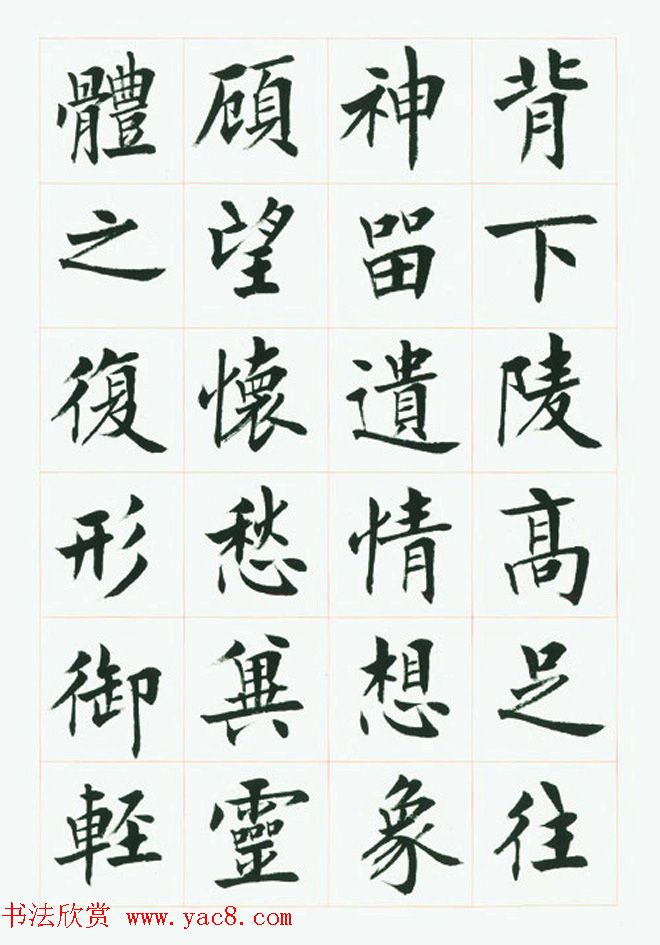 背下陵高足往
神留遺情想象
顧望懷愁冀靈
體之復形御輕
书法欣赏 www.yac8.com